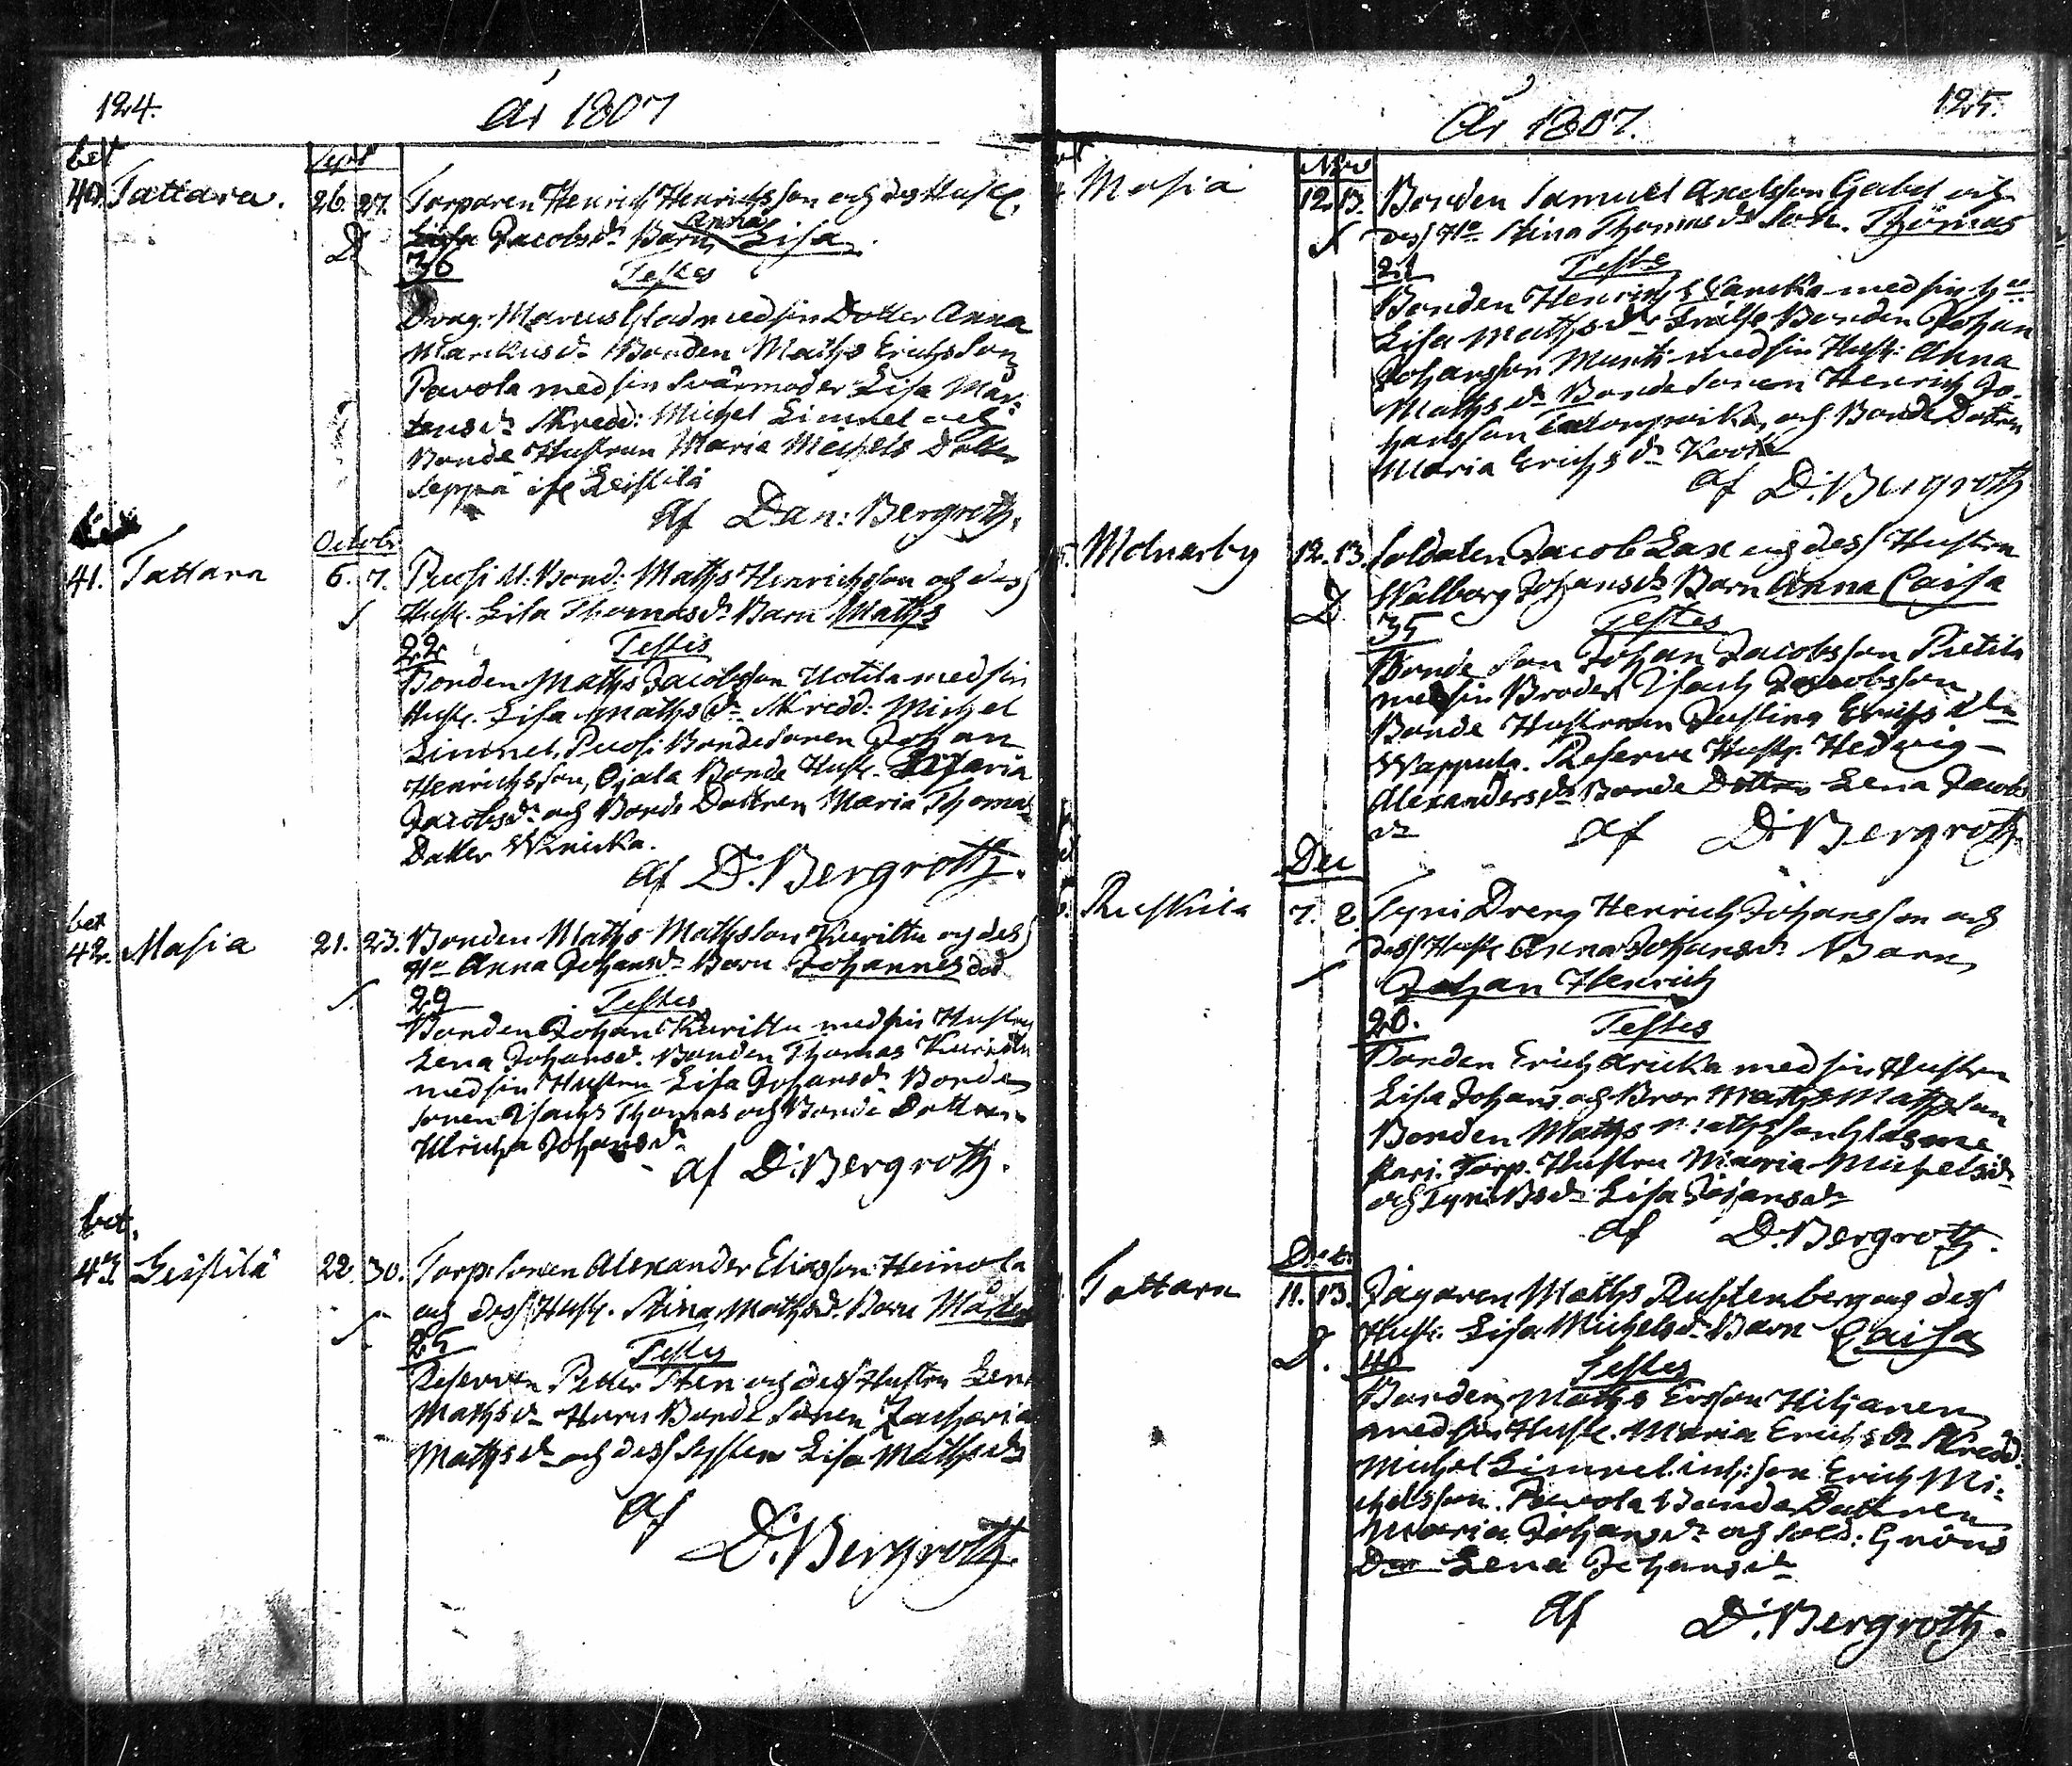 124.
År 1807
bet
Sept
40. Tattara. 26. 27. Torparen Henrich Henrichsson och dess Hustr.
Lisa Jacobsdr Barn Anna Lisa
D
36
Testes
Drag. Marcus Glad med sin Dotter Anna
Marckusdr Bonden Maths Erichsson
Pavola med sin Svärmoder Lisa Mår-
tensdr Skredd: Michel Limnel och
Bonde Hustrun Maria Michels Dotter
Seppä if. Leistilä
af Dan: Bergroth.
Octobr
41. Tattara 6. 7. Puosi U: Bond: Maths Henrichsson och dess
Hustr. Lisa Thomasdr Barn Maths
22
Testes
Bonden Maths Jacobsson Uotila med sin
Hustr. Lisa Mathsdr Skredd: Michel
Limnel, Puosi Bondesonen Johan
Henrichsson, Ojala Bonde Hustr. Maria
Jacobsdr och Bonde Dottren Maria Thomas
Dotter
af D. Bergroth.
bet
42. Masia 21. 23. Bonden Maths Mathsson Kurittu och dess
Hu Anna Johansdr Barn Johannes död
29
Testes
Bonden Johan Kurittu med sin Hustru
Lena Johansdr. Bonden Thomas Kurittu
med sin Hustru Lisa Johansdr Bonde
sonen Isach Thomas och Bonde Dottren
Ulricha Johansdr
af D. Bergroth.
bet.
43. Leistilä 22. 30. Torp. sonen Alexander Eliasson Heinola
och dess Hustr. Stina Mathsdr. Barn Mårten
25
Testes
Reserven Petter Sten och dess Hustru Lena
Mathsdr Bonde sonen Zacharia
Maths och dess Syster Lisa Mathsdr
af
D. Bergroth.
125.
År 1807.
Nov
Masia 12. 13. Bonden Samuel Axelsson Gabel och
dess Hu Stina Thomasdr Son. Thomas
21
Testes
Bonden Henrich med sin Hu
Lisa Mathsdr Frälse Bonden Johan
Johansson Mentti med sin Hustr: Anna
Mathsdr Bondesonen Henrich Jo-
hansson och Bonde Dottren
Maria Erichsdr
af D. Bergroth
Molnarby 12. 13. Soldaten Jacob Lax och dess Hustru
Walborg Johansdr Barn Anna Caisa
D
35
Testes
Bonde Son Johan Jacobsson Pietilä
med sin Broder Isach Jacobsson
Bonde Hustrun Justina Erichsdtr
Wappula. Reserve Hustr. Hedwig
Alexandersdr Bonde Dottren Lena Jacobs
dr
af D. Bergroth
Dec
Ruskila 7. 2. Tyni Dreng Henrich Johansson och
dess Hustr Anna Johansdr Barn
Johan Henrich
20.
Testes
Bonden Erich Aricka med sin Hustru
Lisa Johans. och Bror Maths Mathsson
Bonden Maths Mathsson
Torp. Hustru Maria Michelsdr
och Tyni Lisa Johansdr
af D. Bergroth.
Dec.
Tattara 11. 13. Jägaren Maths Rustenberg och dess
Hustr. Lisa Michelsdr Barn Caisa
D.
40
Testes
Bonden Maths Ersson Hiljanen
med sin Hustr. Maria Erichsdr Skredd.
Michel Limnel. Erich Mi-
chelsson. Pavola Bonde Dottren
Maria Johansdr och Sold: Gröns
Dr Lena Johansdr
af D. Bergroth.